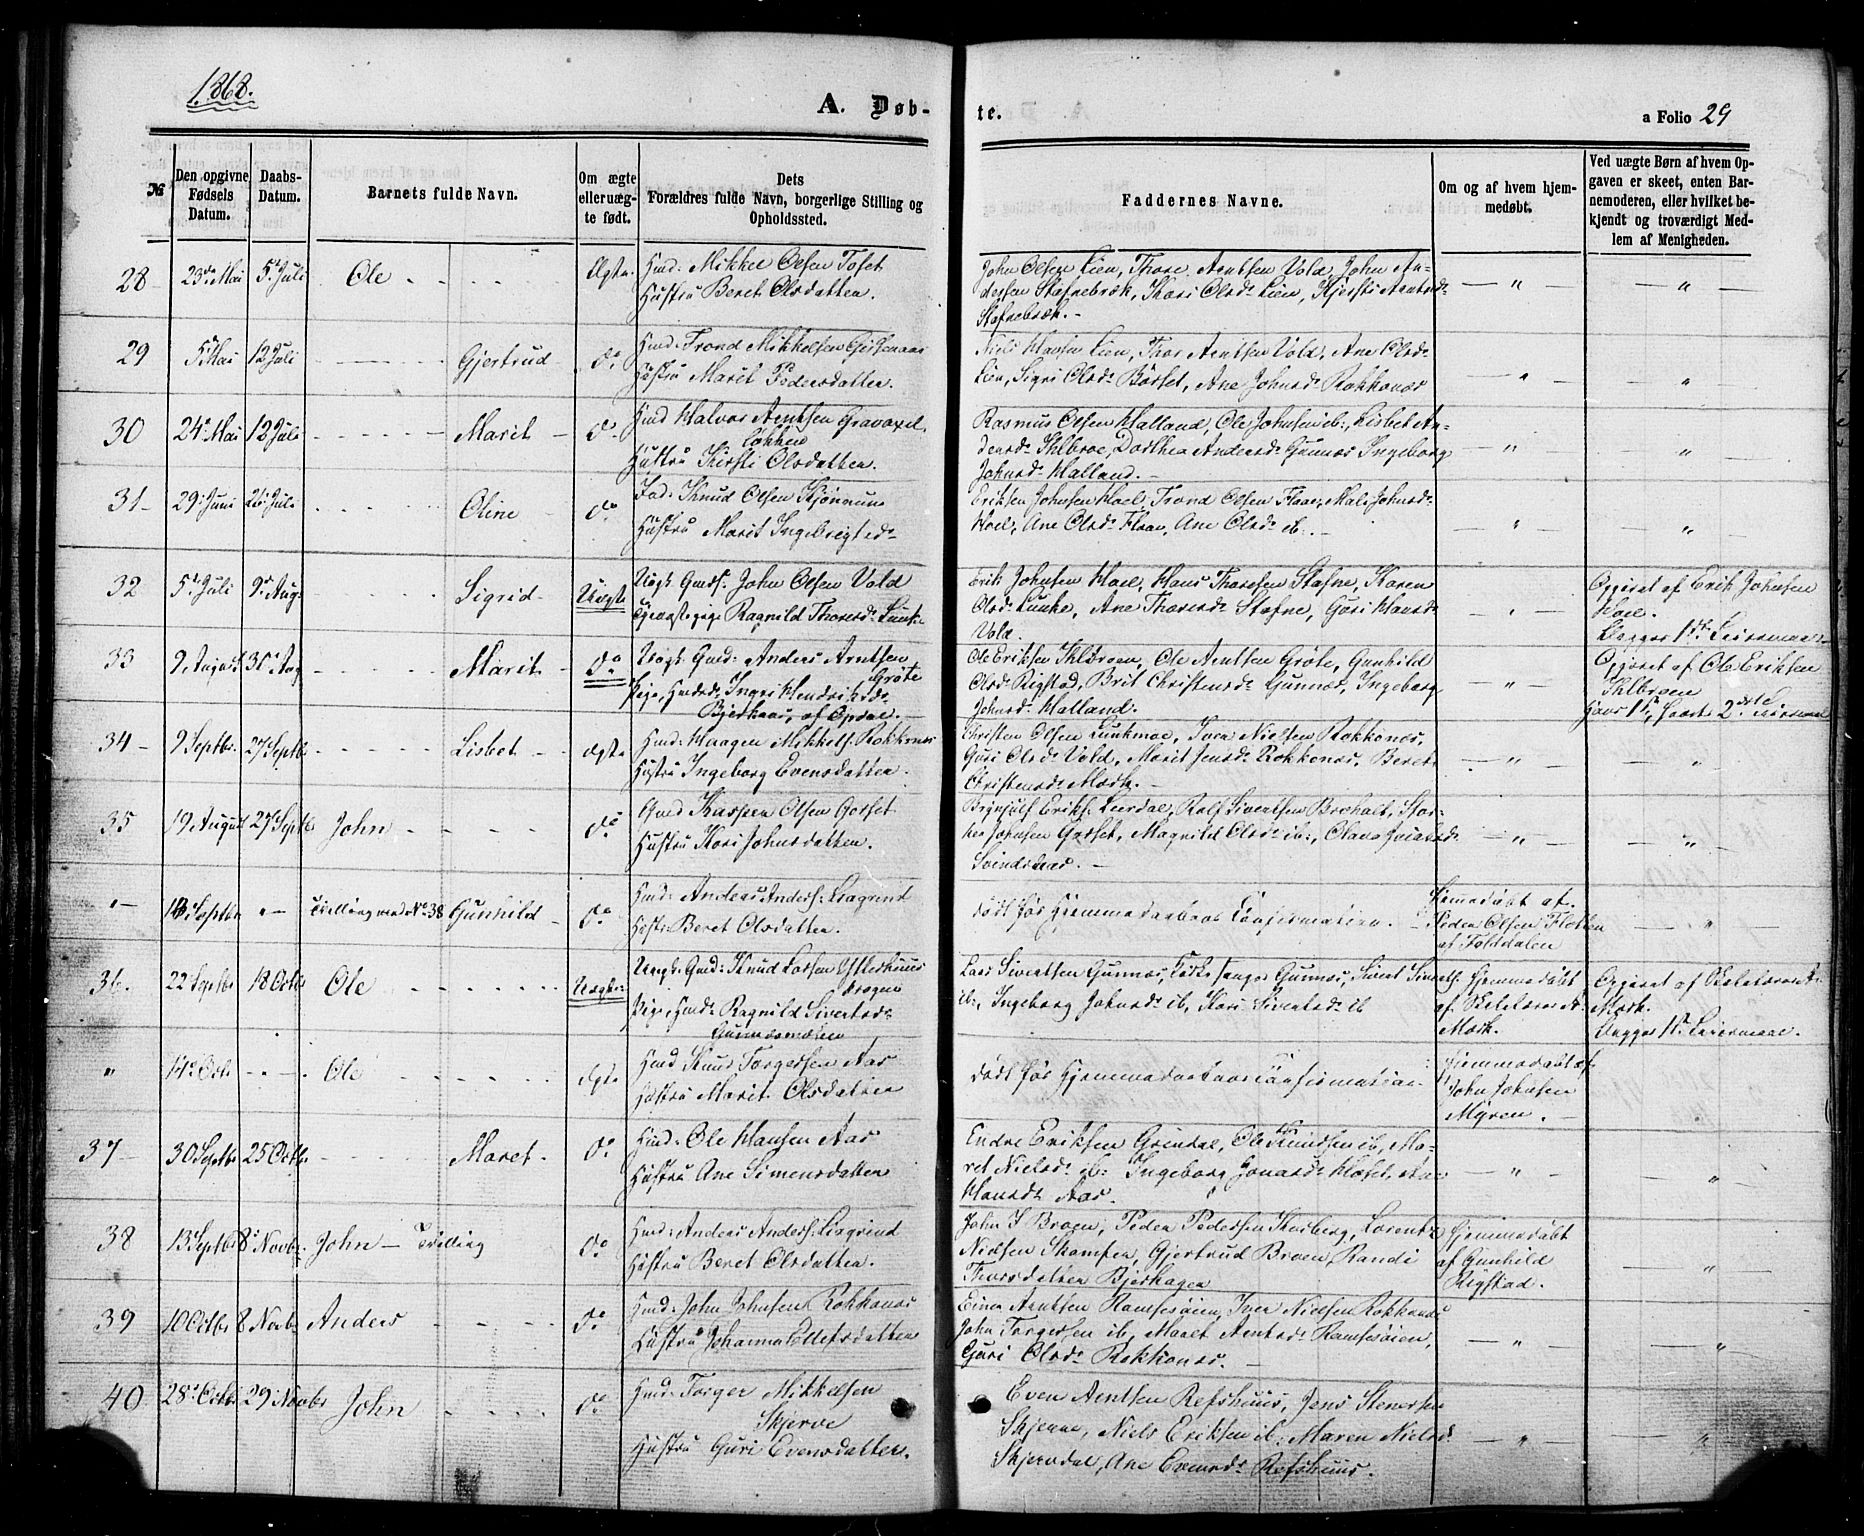 1868.
A. Døb-
te.
a Folio 29
№
Den opgivne Fødsels Datum.
Daabs-Datum.
Barnets fulde Navn.
Om ægte eller uægte født.
Dets Forældres fulde Navn, borgerlige Stilling og Opholdssted.
Faddernes Navne.
Om og af hvem hjemmedøbt.
Ved uægte Børn af hvem Opgaven er skeet, enten Barnemoderen, eller hvilket bekjendt og troværdigt Medlem af Menigheden.
28 23de Mai 5te Juli Ole Ægte
Gmd: Mikkel Olsen Toset
Hustru Beret Olsdatter.
John Olsen Lien, Thore Arntsen Vold, John An-
dersen Stefnebræk, Kari Olsd: Lien, Kjersti Arntsd:
Stefnebræk.
29 5 Mai 12 Juli Gjertrud do
Gmd: Trond Mikkelsen
Hustru Marit Pedersdatter.
Niels Hansen Lien, Thor Arntsen Vold, Ane Olsd:
Lien, Sigri Olsd: Bösset, Ane Johnsd: Rokkones
30 24 Mai 12 Juli Marit do
Gmd Halvor Arntsen Gravaxel
Løkken
Hustru Kirsti Olsdatter.
Rasmus Olsen Halland, Ole Johnsen ib:, Lisbet An-
dersd: Ihlbroe, Dorthea Andersd: Gunnes Ingeborg
Johnsd: Halland.
31 29 Juni 26 Juli Oline do
Knud Olsen
Hustru Marit Ingebrigtsd:
Eriksen Johnsen Hoel, Trond Olsen Flaae, Mali Johnsd:
Hoel, Ane Olsd: Flaae, Ane Olsd: ib:
32 5te Juli 9de Aug: Sigrid Uægte
Ungk. Gmds: John Olsen Vold
Ragnild Thoresd:
Erik Johnsen Hoel, Hans Thoresen Stefne, Karen
Olsd: Lunke, Ane Thoresd: Stefne, Guri Hansd:
Vold.
Opgivet af Erik Johnsen
Hoel.
Begges 1ste Leiermaal
33 9 August 30 Aug Marit do
Ungk. Gmd: Anders Arntsen
Grøte
Pige, Ingri Hendriksd:
Bjerkaas, af Opdal.
Ole Eriksen Ihlbroen, Ole Arntsen Grøte, Gunhild
Olsd: Rigstad, Brit Christensd: Gunnes, Ingeborg
Johnsd: Halland.
Opgivet af Ole Eriksen
Ihlbroen
hans 1ste, 2det Leiermaal
34 9 Septbr. 27 Septbr. Lisbet ægte
Gmd: Haagen Mikkels: Rokkones
Hustru Ingeborg Evensdatter.
Christen Olsen Lunkmoe, Iver Nielsen Rokkones,
Guri Olsd: Vold, Marit Jensd: Rokkones, Beret
Christensd: Mærk.
35 19 August 27 Septbr John do
Gmd Kasper Olsen Gorset
Hustru Kari Johnsdatter.
Brynjulf Eriks: Leerdal, Rolf Sivertsen Breholt, Stor-
ker Johnsen Gorset, Magnild Olsd: ib:, Olava
Svindsaas.
" 13 Septbr " Tvilling med No 38 Gunhild do
Gmd: Anders Anders: Liagrind
Hustr: Beret Olsdatter.
Død før Hjemmedaabens Confirmation.
Hjemmedøbt af
Peder Olsen
af Folddalen
36. 22 Septbr 18 Octbr Ole Uægte
Ungk. Gmd: Knud Larsen
Pige, Gmd: Ragnild Sivertsd:
Gunnesmoen
Lars Sivertsen Gunnes, Gunnes, Sivert Sivertss:
ib:, Ingeborg Johnsd: ib, Kari Sivertsd: ib
Hjemmedøbt
af Skolelærer A.
Mærk.
Opgivet af Skolelærer A.
Mærk.
Begges 1ste Leiermaal.
" 14 Octbr Ole ægte
Gmd Knud Torgersen Aas
Hustru Marit Olsdatter
Død før Hjemmedaabens Confirmation
Hjemmedøbt af
John Johnsen
Myren.
37 30 Septbr 25 Octbr Maret do
Gmd: Ole Hansen Aas
Hustru Ane Simensdatter
Endre Eriksen Grindal, Ole Knudsen ib, Ma-
ret Nielsd: ib: Ingeborg Jonasd: Hoset,
Hansd: Aas.
38 13 Septbr 8 Novbr. John Tvilling do
Gmd: Anders Anders: Liagrind
Hustru Beret Olsdatter.
John J Broen, Peder Pedersen Storberg, Lorents
Nielsen Skamfer, Gjertrud Broen, Randi
Thorsdatter Bjerhagen
Hjemmedøbt
af Gunhild
Rigstad.
39 10 Octbr 8 Novbr Anders do
Gmd: John Johnsen Rokkones
Hustru Johanna Ellefsdatter
Einar Arntsen Ramsesøien, Iver Nielsen Rokkones
John Torgersen ib, Marit Arntsd: Ramsesøien,
Guri Olsd: Rokkones.
40 28 Octbr 29 Novbr John do
Gmd: Torger Mikkelsen
Skjerve
Hustru Guri Evensdatter.
Even Arntsen Refshuus, Jens Stenersen
Skjerve, Niels Eriksen ib: Maren Nielsd:
Skjervdal, Ane Evensd: Refshuus.